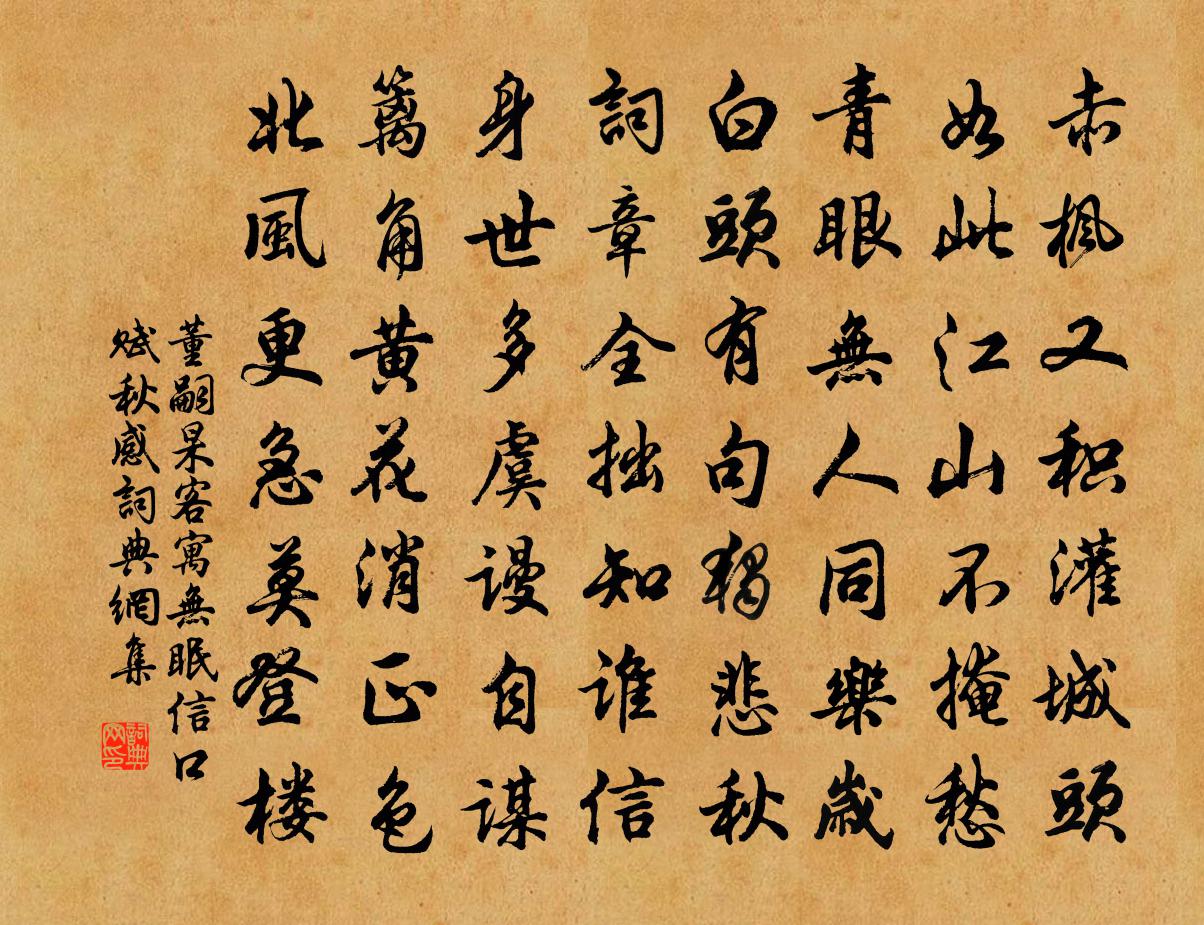 赤楓又积灌城頭
如此江山不掩愁
青眼無人同樂歲
白頭有句獨悲秋
詞章全拙知誰信
身世多虞谩自謀
籬角黄花消正色
北風更急莫登楼
董嗣杲客寓無眠信口
赋秋感詞典網集
詞典網印